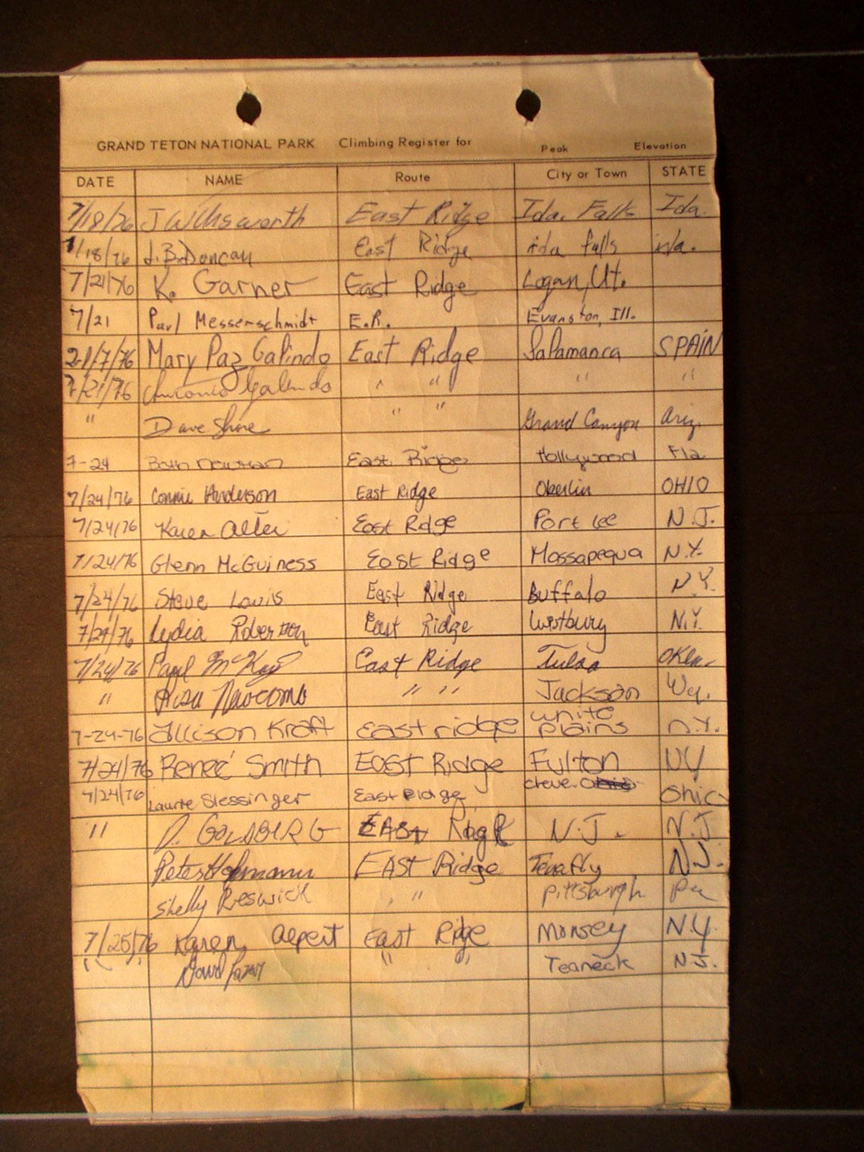 GRAND TETON NATIONAL PARK Climbing Register for Peak Elevation
DATE NAME Route City or Town STATE
7/18/76 J W Unsworth East Ridge Ida. Falls Ida.
7/18/76 J.B. Duncan East Ridge ida falls ida.
7/21/76 K. Garner East Ridge Logan, Ut.
7/21 Paul Messerschmidt E.R. Evanston, Ill.
21/7/76 Mary Paz Galindo East Ridge Salamanca SPAIN
7/21/76 Antonio Galindo " " " "
" Dave Shore Grand Canyon Ariz.
" "
7-24 Newman East Ridge Hollywood Fla
7/24/76 Connie Anderson East Ridge Oberlin OHIO
7/24/76 Karen Alter East Rdge Port Lee N.J.
7/24/76 Glenn McGuiness East Ridge Massapequa N.Y.
7/24/76 Steve Lewis East Ridge Buffalo N.Y.
7/24/76 Lydia East Ridge Westbury N.Y.
7/24/76 Paul McKay East Ridge Tulsa Okla.
" Newcomb " " Jackson Wy.
7-24-76 Allison Kraft East ridge white plains n.y.
7/24/76 Reneé Smith East Ridge Fulton NY
7/24/76 Laurie Slessinger East Ridge cleve. Ohio
" D. GOLDBERG EAST N.J. N.J
Peter Hofmann EAST Ridge Tenafly N.J.
Shelly Reswick " " Pittsburgh Pa
7/25/76 Karen Alpert East Ridge Monsey N.Y.
" " David " " Teaneck N.J.